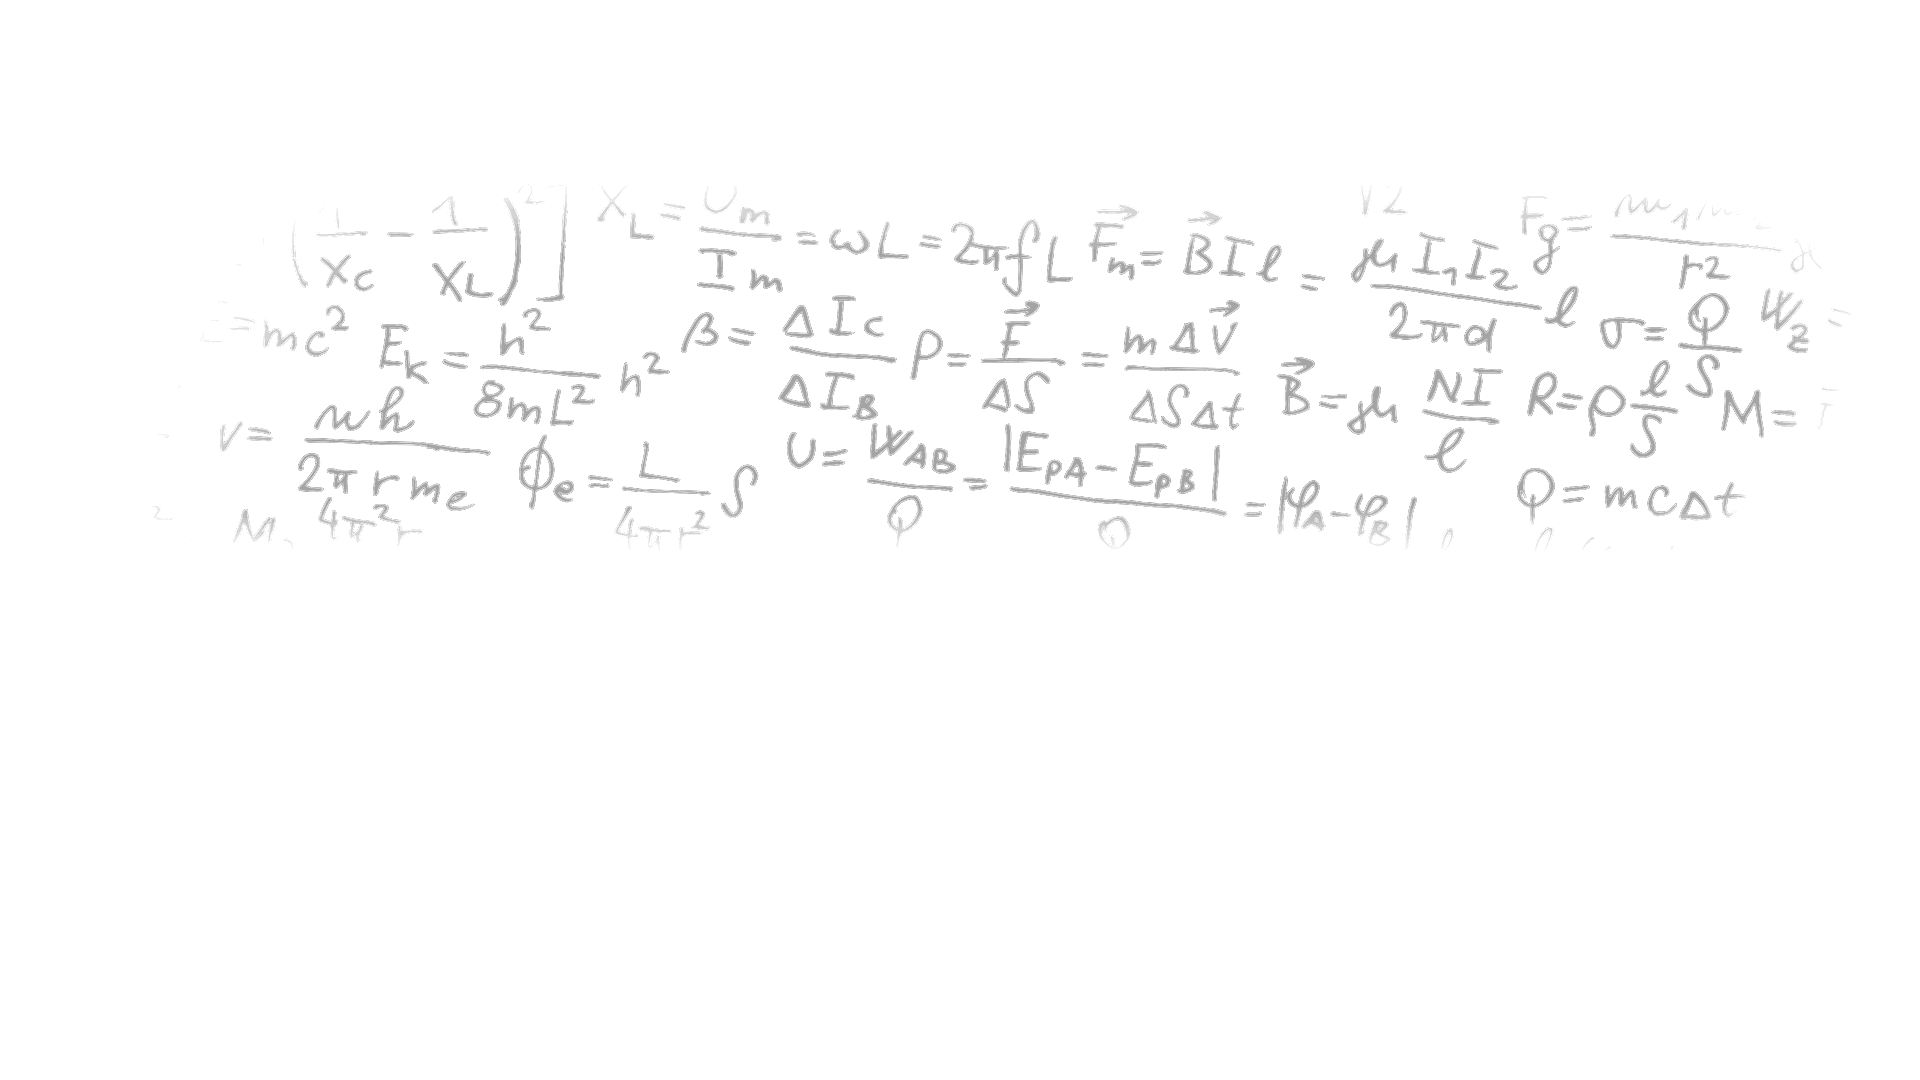 (1/X_C − 1/X_L)²] X_L = U_m/I_m = ωL = 2πfL F⃗_m = B⃗ I ℓ = μ I₁ I₂/2πd ℓ F_g = m₁m₂/r²
E = mc² E_k = h²/8mL² n² β = ΔI_C/ΔI_B p = F⃗/ΔS = mΔv⃗/ΔSΔt B⃗ = μ NI/ℓ R = ρ ℓ/S σ = Q/S W_z =
v = nh/2πrm_e ϕ_e = L/4πr² S U = W_AB/Q = |E_pA − E_pB|/Q = |φ_A − φ_B| Q = mcΔt M =
4π²r